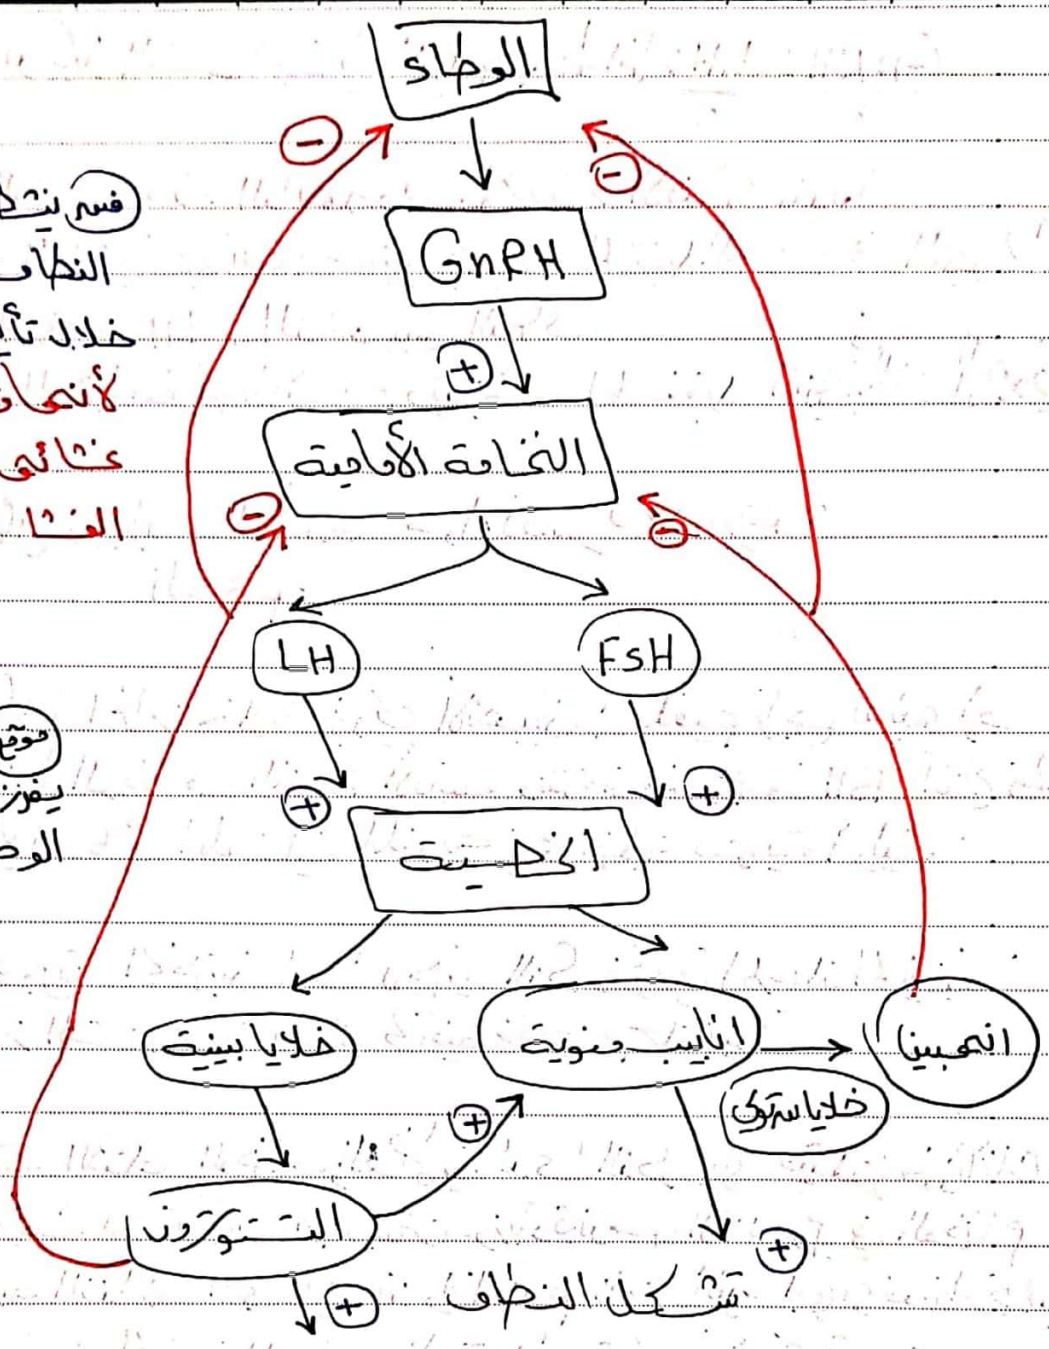 الوطاء
−
−
GnRH
+
النخامة الأمامية
−
−
LH
FSH
+
+
الخصية
خلايا بينية
انابيب منوية
انهيبينا
خلايا سرتولي
+
التستوسترون
+
تشكل النطاف
+
فسر
النطاف
خلال
الغشا
يفرز